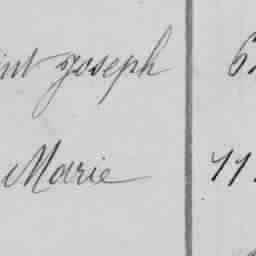 int joseph 6
Marie 11.